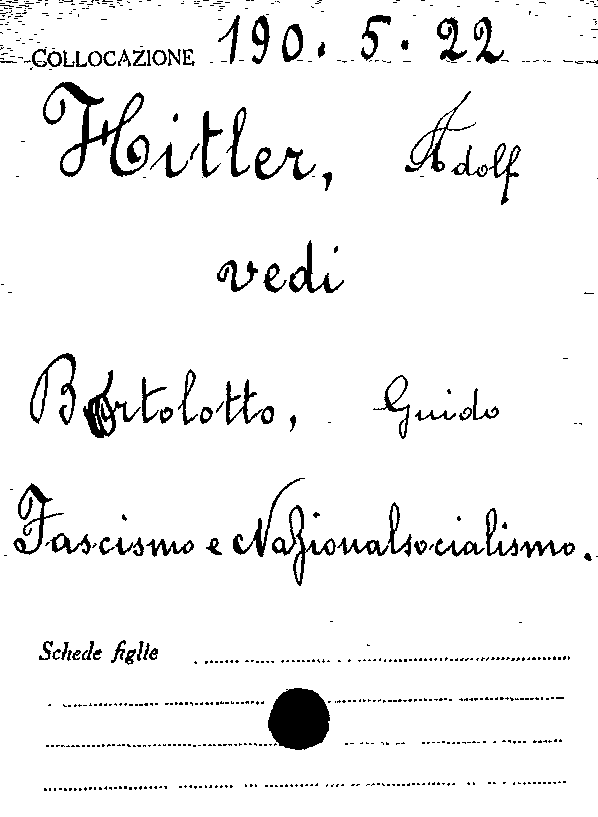 COLLOCAZIONE 190. 5. 22
Hitler, Adolf
vedi
Bortolotto, Guido
Fascismo e Nazionalsocialismo.
Schede figlie